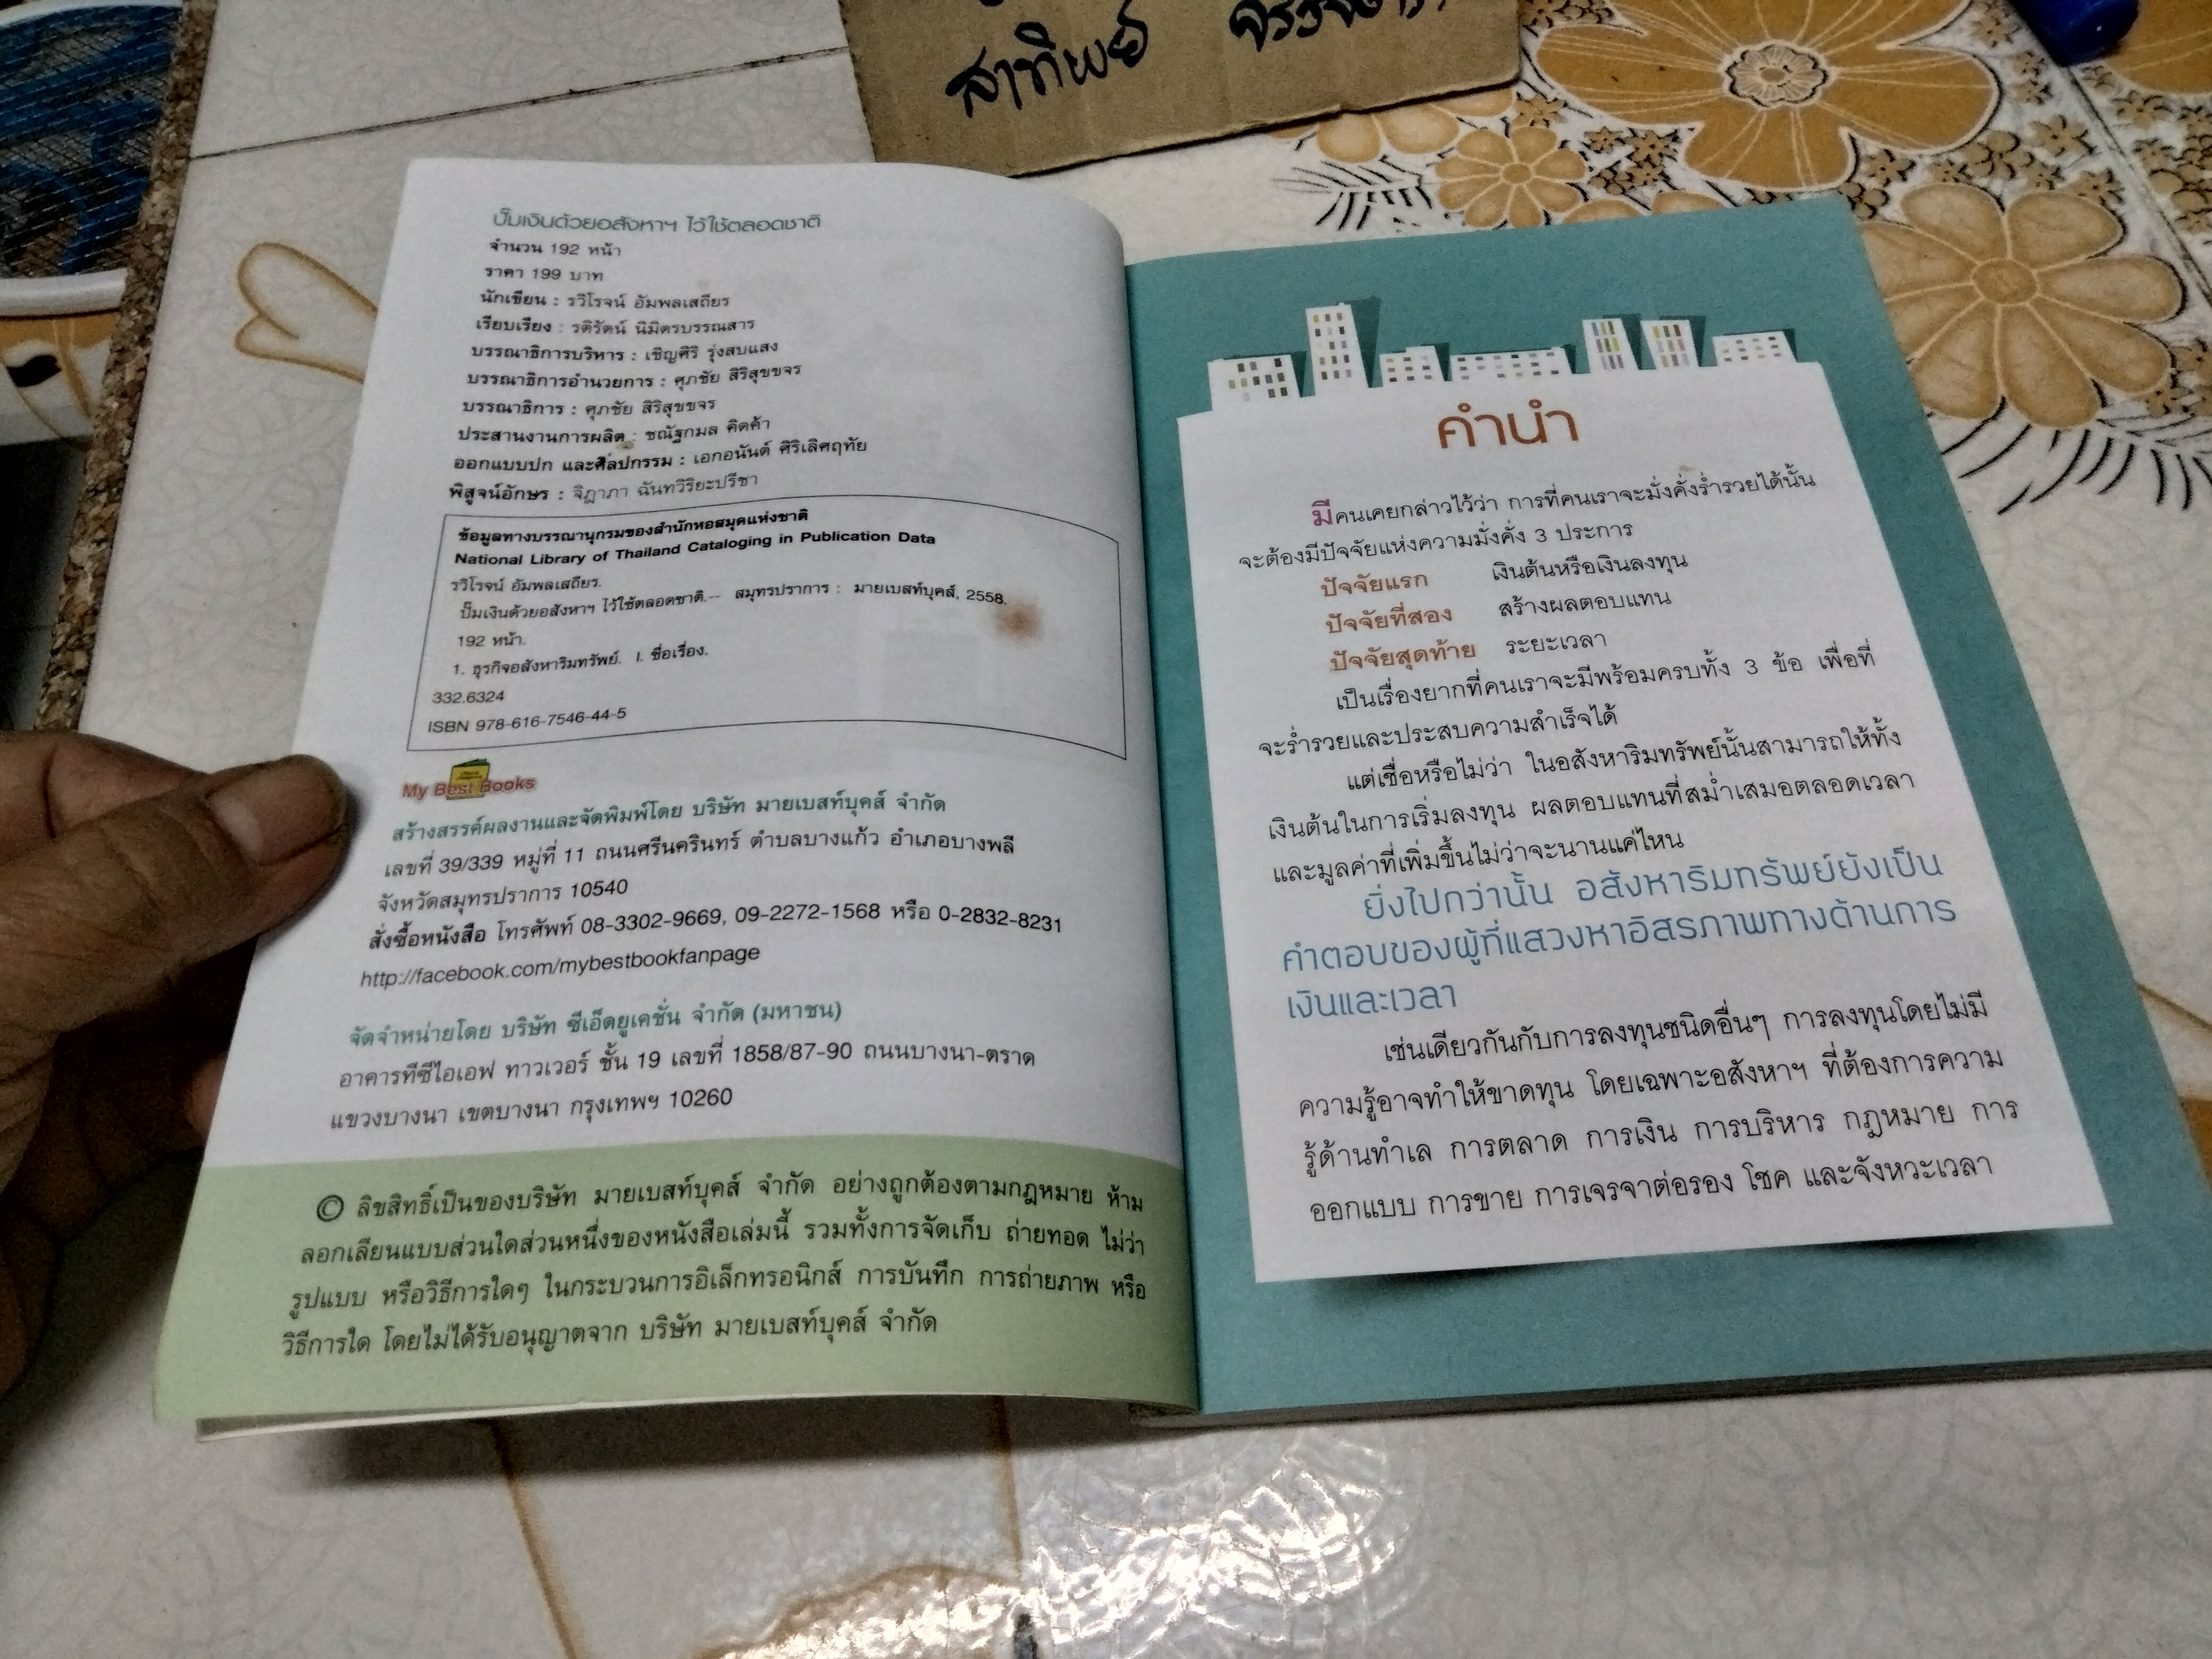 สาทิพย์
ปั๊มเงินด้วยอสังหาฯ ไว้ใช้ตลอดชาติ
จำนวน 192 หน้า
ราคา 199 บาท
นักเขียน : รวิโรจน์ อัมพลเสถียร
เรียบเรียง : รติรัตน์ นิมิตรบรรณสาร
บรรณาธิการบริหาร : เชิญศิริ รุ่งสบแสง
บรรณาธิการอำนวยการ : ศุภชัย สิริสุขขจร
บรรณาธิการ : ศุภชัย สิริสุขขจร
ประสานงานการผลิต : ชณัฐกมล คิดค้า
ออกแบบปก และศิลปกรรม : เอกอนันต์ ศิริเลิศฤทัย
พิสูจน์อักษร : จิฎาภา ฉันทวิริยะปรีชา
ข้อมูลทางบรรณานุกรมของสำนักหอสมุดแห่งชาติ
National Library of Thailand Cataloging in Publication Data
รวิโรจน์ อัมพลเสถียร.
ปั๊มเงินด้วยอสังหาฯ ไว้ใช้ตลอดชาติ.-- สมุทรปราการ : มายเบสท์บุคส์, 2558.
192 หน้า.
1. ธุรกิจอสังหาริมทรัพย์. I. ชื่อเรื่อง.
332.6324
ISBN 978-616-7546-44-5
My Best Books
สร้างสรรค์ผลงานและจัดพิมพ์โดย บริษัท มายเบสท์บุคส์ จำกัด
เลขที่ 39/339 หมู่ที่ 11 ถนนศรีนครินทร์ ตำบลบางแก้ว อำเภอบางพลี
จังหวัดสมุทรปราการ 10540
สั่งซื้อหนังสือ โทรศัพท์ 08-3302-9669, 09-2272-1568 หรือ 0-2832-8231
http://facebook.com/mybestbookfanpage
จัดจำหน่ายโดย บริษัท ซีเอ็ดยูเคชั่น จำกัด (มหาชน)
อาคารทีซีไอเอฟ ทาวเวอร์ ชั้น 19 เลขที่ 1858/87-90 ถนนบางนา-ตราด
แขวงบางนา เขตบางนา กรุงเทพฯ 10260
© ลิขสิทธิ์เป็นของบริษัท มายเบสท์บุคส์ จำกัด อย่างถูกต้องตามกฎหมาย ห้าม
ลอกเลียนแบบส่วนใดส่วนหนึ่งของหนังสือเล่มนี้ รวมทั้งการจัดเก็บ ถ่ายทอด ไม่ว่า
รูปแบบ หรือวิธีการใดๆ ในกระบวนการอิเล็กทรอนิกส์ การบันทึก การถ่ายภาพ หรือ
วิธีการใด โดยไม่ได้รับอนุญาตจาก บริษัท มายเบสท์บุคส์ จำกัด
คำนำ
มีคนเคยกล่าวไว้ว่า การที่คนเราจะมั่งคั่งร่ำรวยได้นั้น
จะต้องมีปัจจัยแห่งความมั่งคั่ง 3 ประการ
ปัจจัยแรก เงินต้นหรือเงินลงทุน
ปัจจัยที่สอง สร้างผลตอบแทน
ปัจจัยสุดท้าย ระยะเวลา
เป็นเรื่องยากที่คนเราจะมีพร้อมครบทั้ง 3 ข้อ เพื่อที่
จะร่ำรวยและประสบความสำเร็จได้
แต่เชื่อหรือไม่ว่า ในอสังหาริมทรัพย์นั้นสามารถให้ทั้ง
เงินต้นในการเริ่มลงทุน ผลตอบแทนที่สม่ำเสมอตลอดเวลา
และมูลค่าที่เพิ่มขึ้นไม่ว่าจะนานแค่ไหน
ยิ่งไปกว่านั้น อสังหาริมทรัพย์ยังเป็น
คำตอบของผู้ที่แสวงหาอิสรภาพทางด้านการ
เงินและเวลา
เช่นเดียวกันกับการลงทุนชนิดอื่นๆ การลงทุนโดยไม่มี
ความรู้อาจทำให้ขาดทุน โดยเฉพาะอสังหาฯ ที่ต้องการความ
รู้ด้านทำเล การตลาด การเงิน การบริหาร กฎหมาย การ
ออกแบบ การขาย การเจรจาต่อรอง โชค และจังหวะเวลา